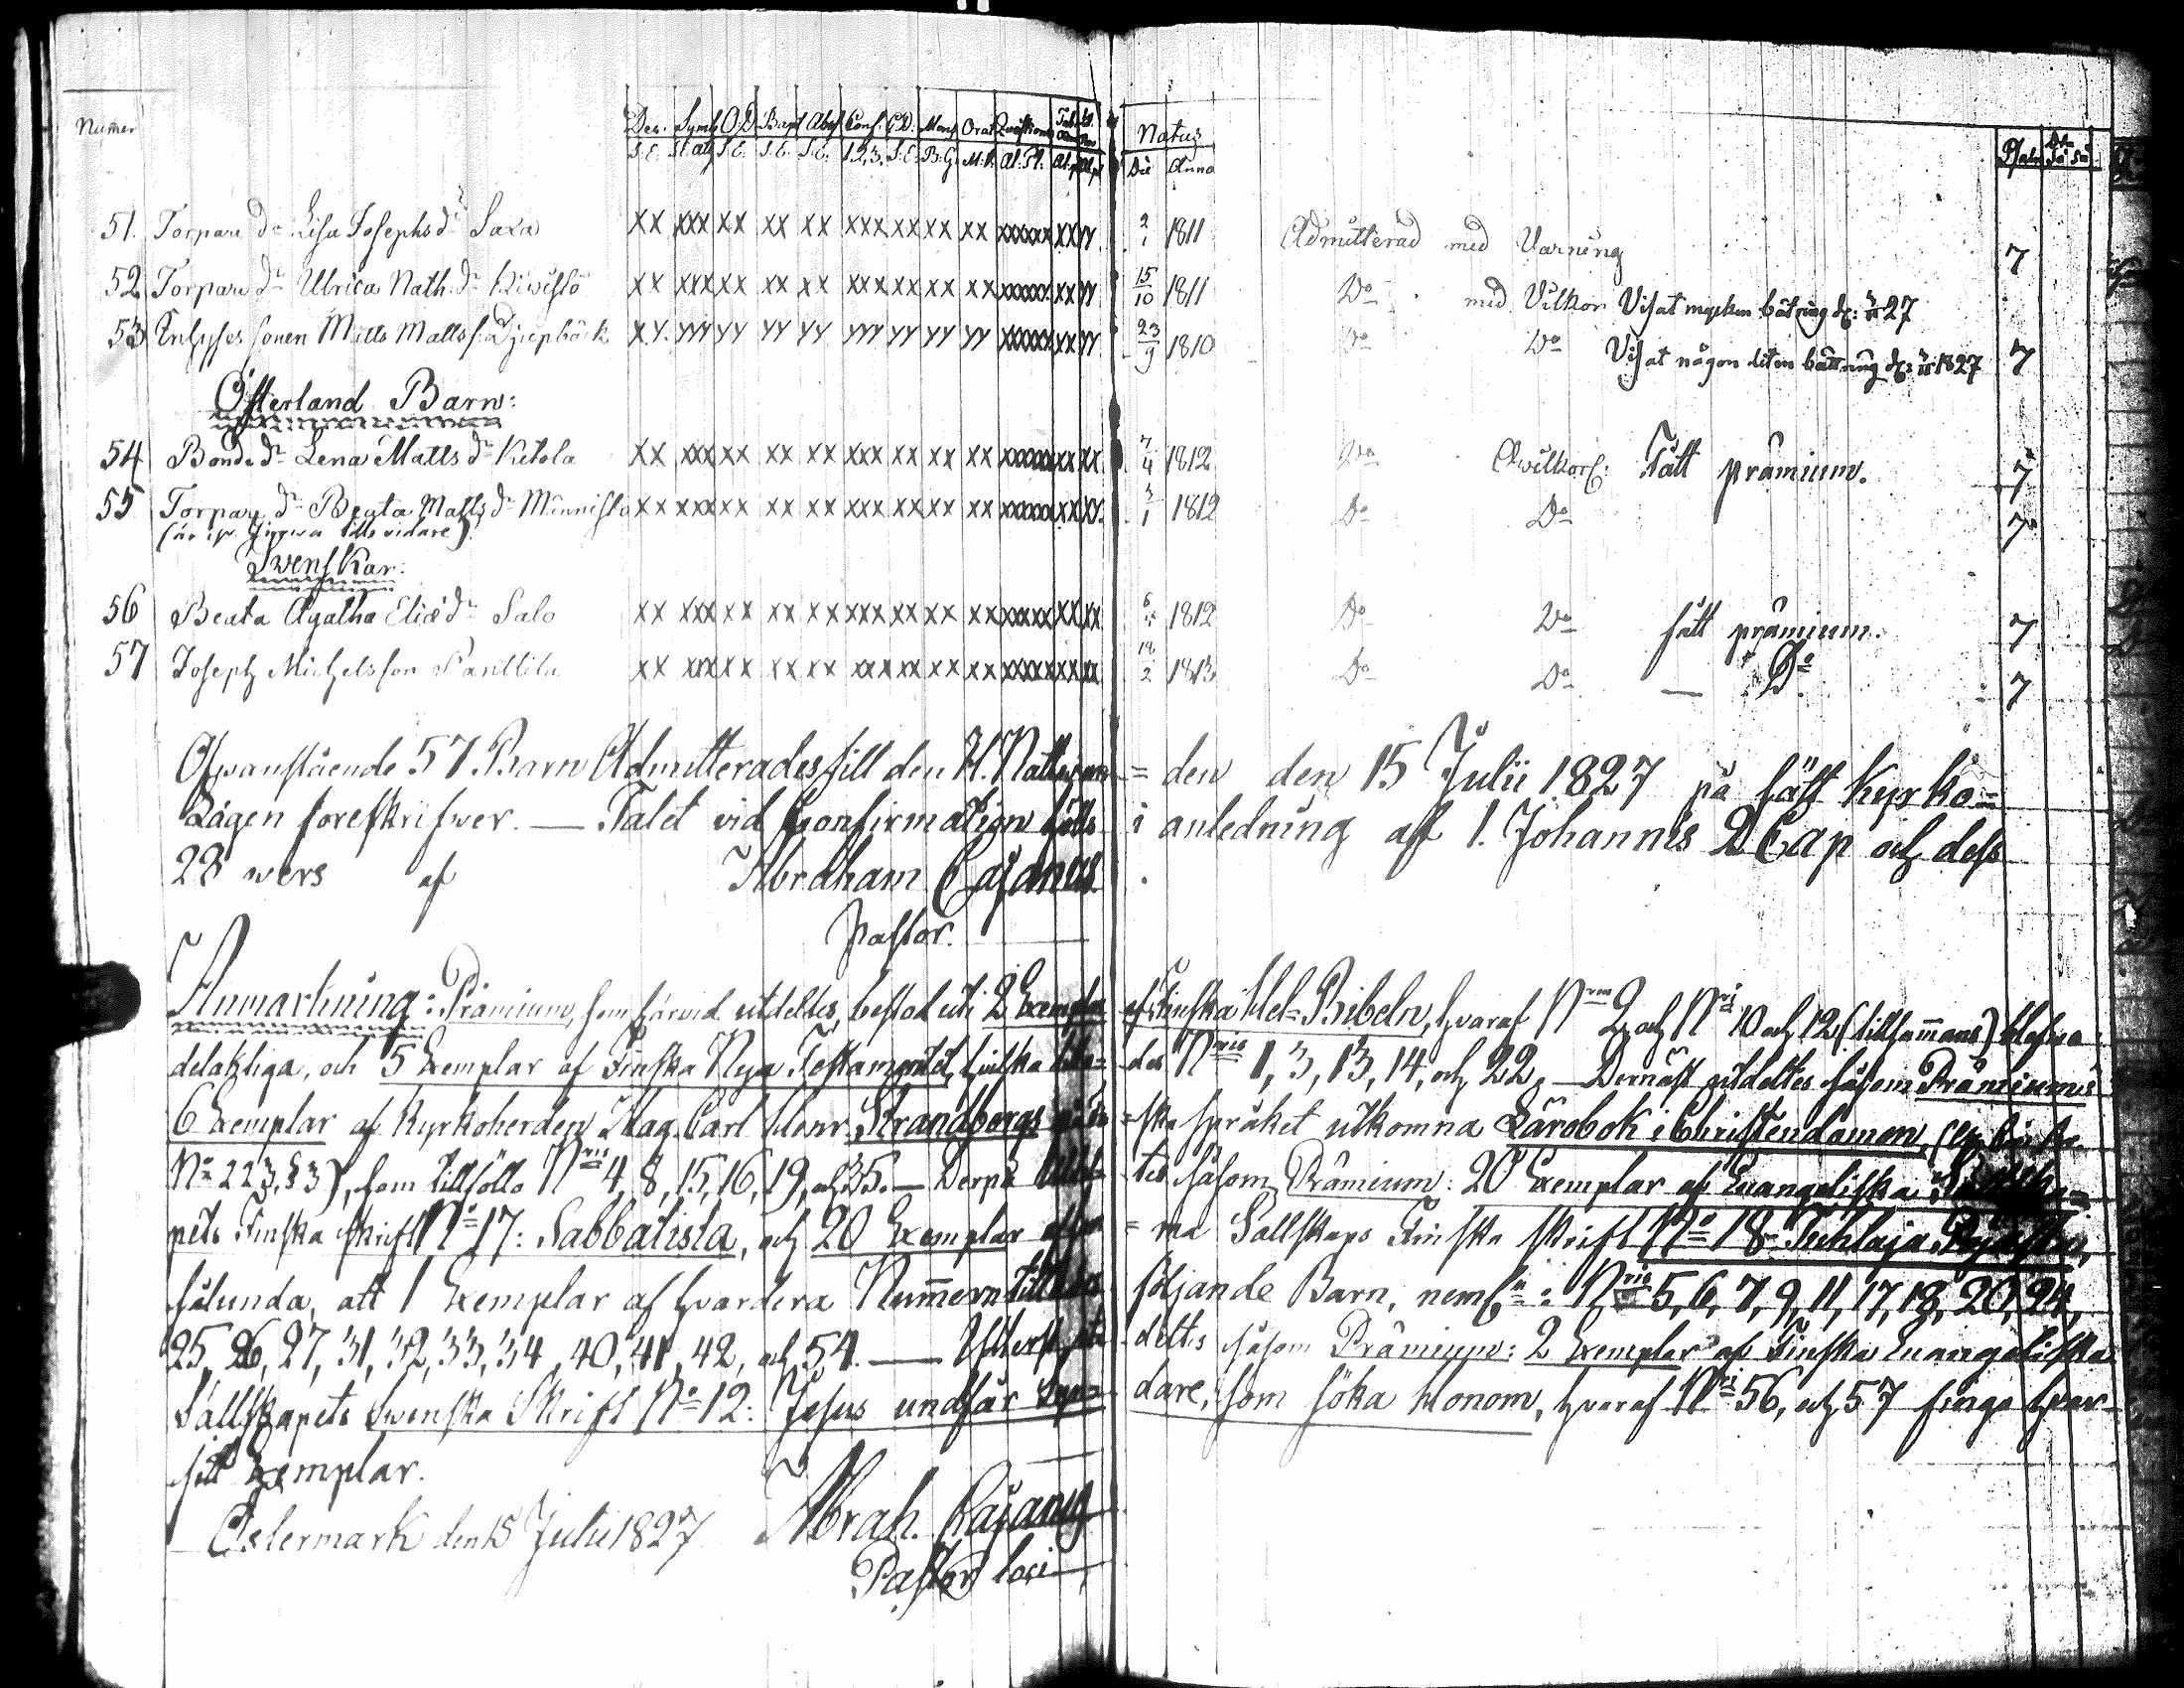 Numer Dec. Symb. O.D. Bapt Abs. Conf. C.D. Mens Orat Quæstiones Natus Psalm
S.E. S.E. S.E. S.E. 1.2.3. S.E. B.G. M.V. Al. Pl. Die Anno
51. Torpare dr Lisa Josephsdr Saxa XX XXX XX XX XX XXX XX XX XX XXXXXX XX YY. 2/1 1811 Admitterad med Varning 7
52 Torpare dr Ulrica Nath.dr Kiwistö XX XXX XX XX XX XXX XX XX XX XXXXXX XX YY 15/10 1811 Do med Vilkor Visat mycken bätring 27
53 Inhyses sonen Matts Matts s. XY YYY YY YY YY YYY YY YY YY XXXXXX XX YY 23/9 1810 Do Do Visat någon liten bättring 1827 7
Österland Barn:
54 Bonde dr Lena Matts dr Kitola XX XXX XX XX XX XXX XX XX XX XXXXXX XX XX 7/4 1812 Do Ovilkorl: Fått præmium. 7
55 Torpare dr Beata Matts dr Männistö XX XXX XX XX XX XXX XX XX XX XXXXXX XX XX. 1812 Do Do 7
tills vidare)
Swenskar:
56 Beata Agatha Eliædr Salo XX XXX XX XX XX XXX XX XX XX XXXXXX XX XX 1812 Do Do fått præmium. 7
57 Joseph Michelsson Panttila XX XXX XX XX XX XXX XX XX XX XXXXXX XX XX 1813 Do Do — Do 7
Ofwanstående 57 Barn Admitterades till den H. Nattwar= den den 15 Julii 1827 på sätt Kyrko=
Lagen föreskrifwer. — Talet vid Confirmation hölls i anledning af 1. Johannis 2 Cap och dess
28 wers af Abraham Cajanus
Pastor.
Anmärkning: Præmium, som härvid utdeltes, bestod uti 2 Exemplar af Finska Hel=Bibeln, hvaraf Nrm 2 och Nri 10 och 12 (tillsammans) blefwo
delaktiga, och 5 Exemplar af Finska Nya Testamentet, hvilka des Nris 1, 3, 13, 14, och 22. — Dernäst utdeltes såsom Præmium:
6 Exemplar af Kyrkoherden Mag. Carl Henr. Strandbergs på =ska språket utkomna Lärobok i Christendomen,
No 223, §3), som tillföllo Nris 4, 8, 15, 16, 19, och 35. — Derpå tes såsom Præmium: 20 Exemplar af Evangeliska
pets Finska skrift No 17: Sabbatista, och 20 Exemplar af =ma Sällskaps Finska skrift No 18
sålunda, att 1 Exemplar af hvardera Nummern följande Barn, neml: Nris 5, 6, 7, 9, 11, 17, 18, 20, 24,
25, 26, 27, 31, 32, 33, 34, 40, 41, 42, och 54. — Ytterst deltes såsom Præmium: 2 Exemplar af Finska Evangeliska
Sällskapets Swenska Skrift No 12: Jesus undfår Syn= dare, som söka Honom, hvaraf Nri 56, och 57 finge hvar
sitt Exemplar.
Östermark den 15 Julii 1827 Abrah. Cajanus
Pastor loci